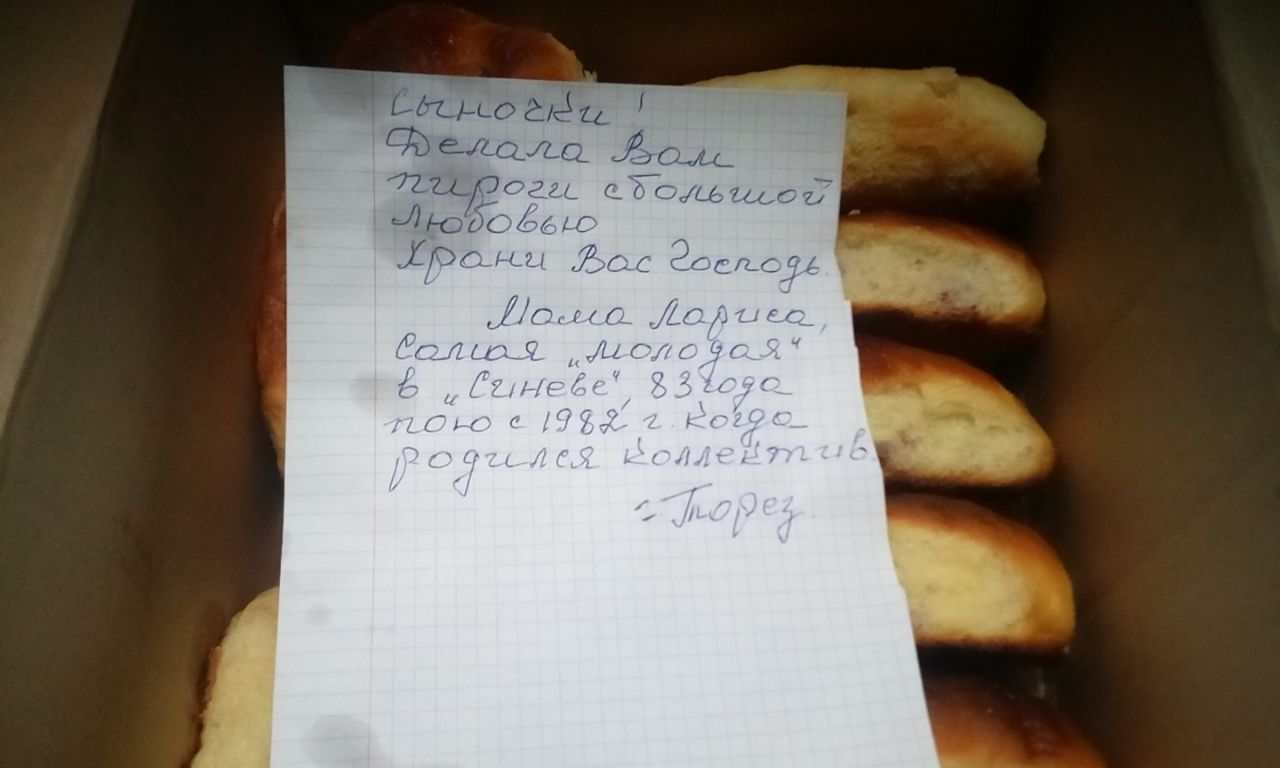 Сыночки!
Делала Вам
пироги с большой
любовью
Храни Вас Господь.
Мама Лариса,
самая „молодая“
в „Синеве“, 83 года
пою с 1982 г. когда
родился коллектив.
г. Торез.